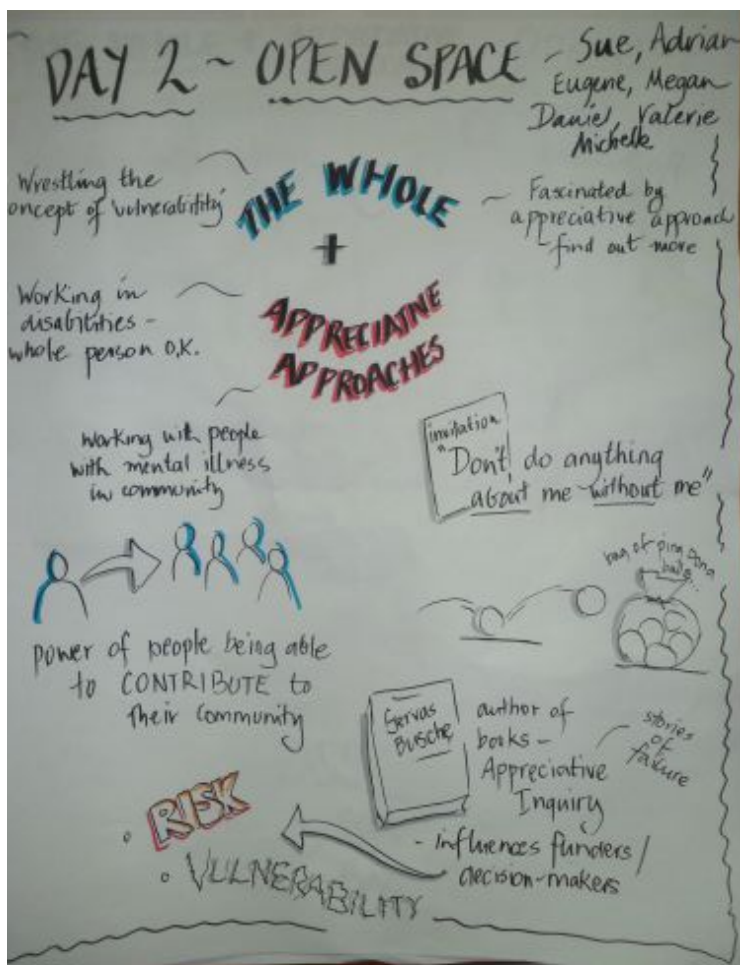 DAY 2 ~ OPEN SPACE
- Sue, Adrian
Eugene, Megan
Daniel, Valerie
Michelle
Wrestling the
oncept of 'vulnerability'
THE WHOLE
+
APPRECIATIVE
APPROACHES
Fascinated by
appreciative approach
- find out more
Working in
disabilities -
whole person O.K.
Working with people
with mental illness
in community
invitation
"Don't do anything
about me without me"
bag of ping pong
balls...
power of people being able
to CONTRIBUTE to
their community
Gervas
Busche
author of
books -
Appreciative
Inquiry
stories
of
failure
- influences funders/
decision-makers
RISK
VULNERABILITY